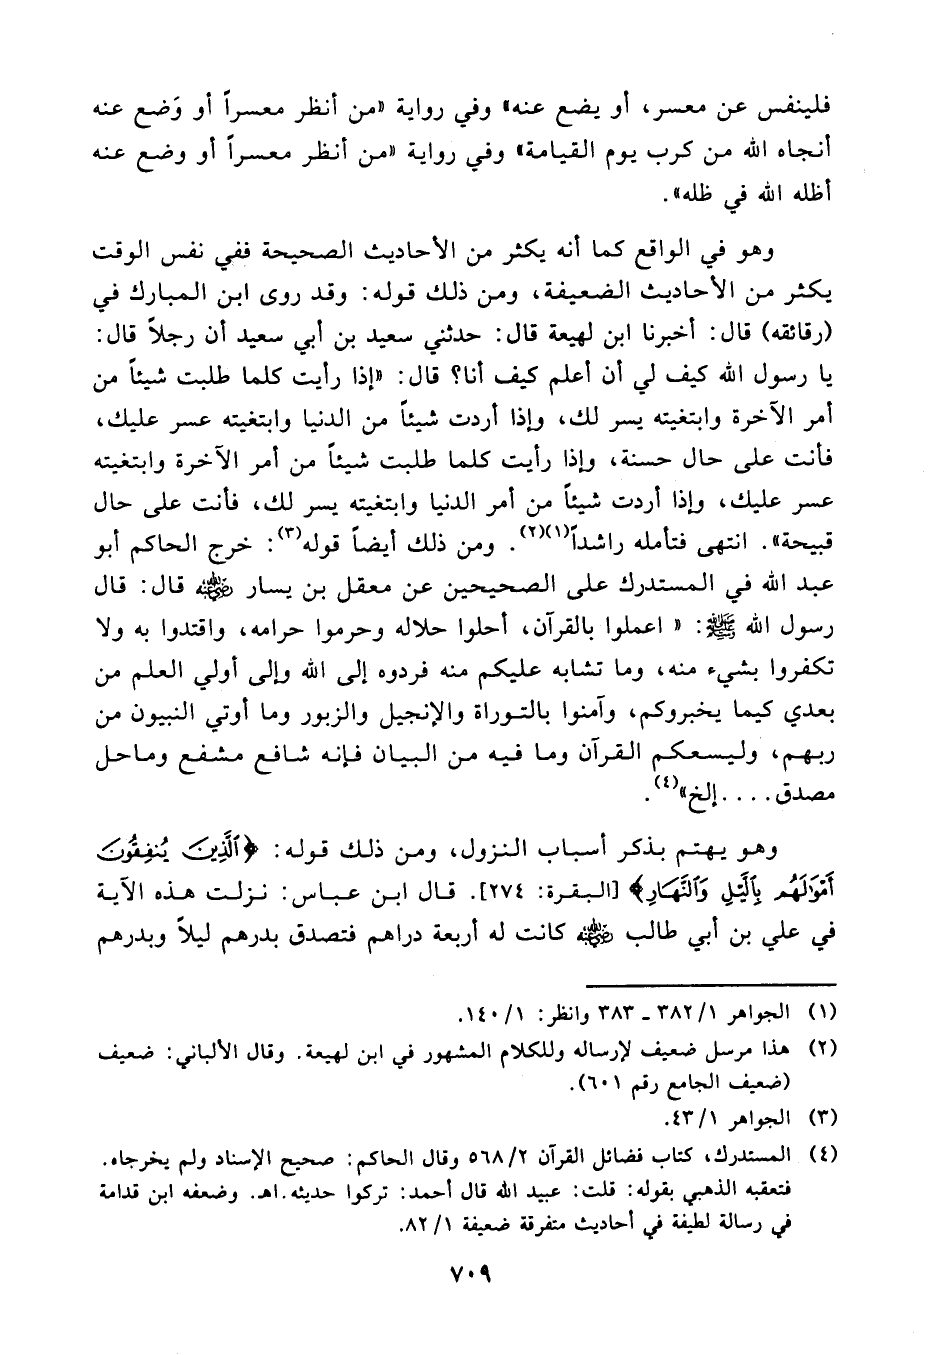 فلينفس عن معسر، أو يضع عنه» وفي رواية «من أنظر معسراً أو وَضع عنه
أنجاه الله من كرب يوم القيامة» وفي رواية «من أنظر معسراً أو وضع عنه
أظله الله في ظله».
وهو في الواقع كما أنه يكثر من الأحاديث الصحيحة ففي نفس الوقت
يكثر من الأحاديث الضعيفة، ومن ذلك قوله: وقد روى ابن المبارك في
(رقائقه) قال: أخبرنا ابن لهيعة قال: حدثني سعيد بن أبي سعيد أن رجلاً قال:
يا رسول الله كيف لي أن أعلم كيف أنا؟ قال: «إذا رأيت كلما طلبت شيئاً من
أمر الآخرة وابتغيته يسر لك، وإذا أردت شيئاً من الدنيا وابتغيته عسر عليك،
فأنت على حال حسنة، وإذا رأيت كلما طلبت شيئاً من أمر الآخرة وابتغيته
عسر عليك، وإذا أردت شيئاً من أمر الدنيا وابتغيته يسر لك، فأنت على حال
قبيحة». انتهى فتأمله راشداً(١)(٢). ومن ذلك أيضاً قوله(٣): خرج الحاكم أبو
عبد الله في المستدرك على الصحيحين عن معقل بن يسار رضي الله عنه قال: قال
رسول الله ﷺ: « اعملوا بالقرآن، أحلوا حلاله وحرموا حرامه، واقتدوا به ولا
تكفروا بشيء منه، وما تشابه عليكم منه فردوه إلى الله وإلى أولي العلم من
بعدي كيما يخبروكم، وآمنوا بالتوراة والإنجيل والزبور وما أوتي النبيون من
ربهم، وليسعكم القرآن وما فيه من البيان فإنه شافع مشفع وماحل
مصدق.... إلخ»(٤).
وهو يهتم بذكر أسباب النزول، ومن ذلك قوله: ﴿ٱلَّذِينَ يُنفِقُونَ
أَمْوَٰلَهُم بِٱلَّيْلِ وَٱلنَّهَارِ﴾ [البقرة: ٢٧٤]. قال ابن عباس: نزلت هذه الآية
في علي بن أبي طالب رضي الله عنه كانت له أربعة دراهم فتصدق بدرهم ليلاً وبدرهم
(١) الجواهر ١/ ٣٨٢ ـ ٣٨٣ وانظر: ١/ ١٤٠.
(٢) هذا مرسل ضعيف لإرساله وللكلام المشهور في ابن لهيعة. وقال الألباني: ضعيف
(ضعيف الجامع رقم ٦٠١).
(٣) الجواهر ١/ ٤٣.
(٤) المستدرك، كتاب فضائل القرآن ٢/ ٥٦٨ وقال الحاكم: صحيح الإسناد ولم يخرجاه.
فتعقبه الذهبي بقوله: قلت: عبيد الله قال أحمد: تركوا حديثه.اهـ. وضعفه ابن قدامة
في رسالة لطيفة في أحاديث متفرقة ضعيفة ١/ ٨٢.
٧٠٩